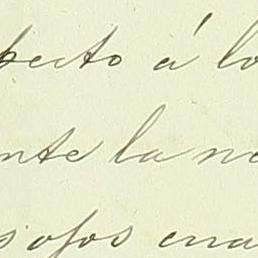 pecto á lo
nte la ne
sofos cua